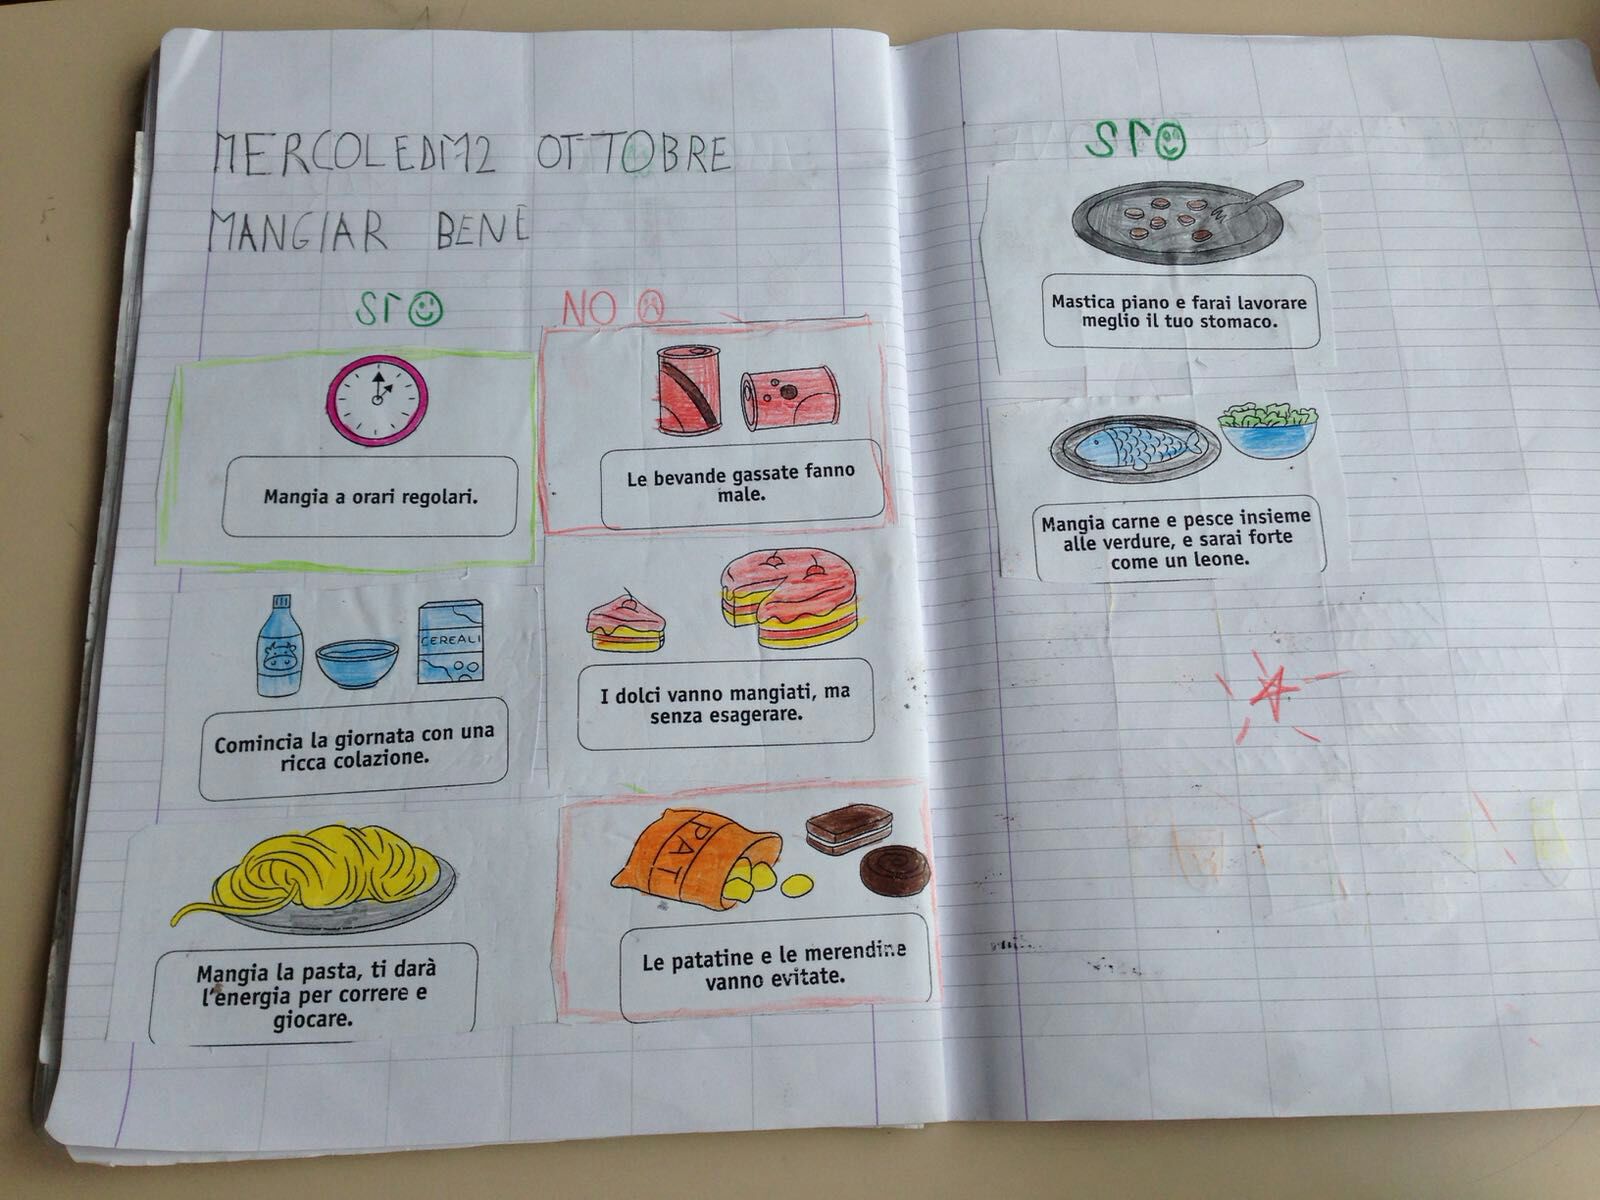 MERCOLEDÌ12 OTTOBRE
MANGIAR BENE
SÌ
NO
Mangia a orari regolari.
Le bevande gassate fanno
male.
CEREALI
Comincia la giornata con una
ricca colazione.
I dolci vanno mangiati, ma
senza esagerare.
Mangia la pasta, ti darà
l'energia per correre e
giocare.
PAT
Le patatine e le merendine
vanno evitate.
SÌ
Mastica piano e farai lavorare
meglio il tuo stomaco.
Mangia carne e pesce insieme
alle verdure, e sarai forte
come un leone.